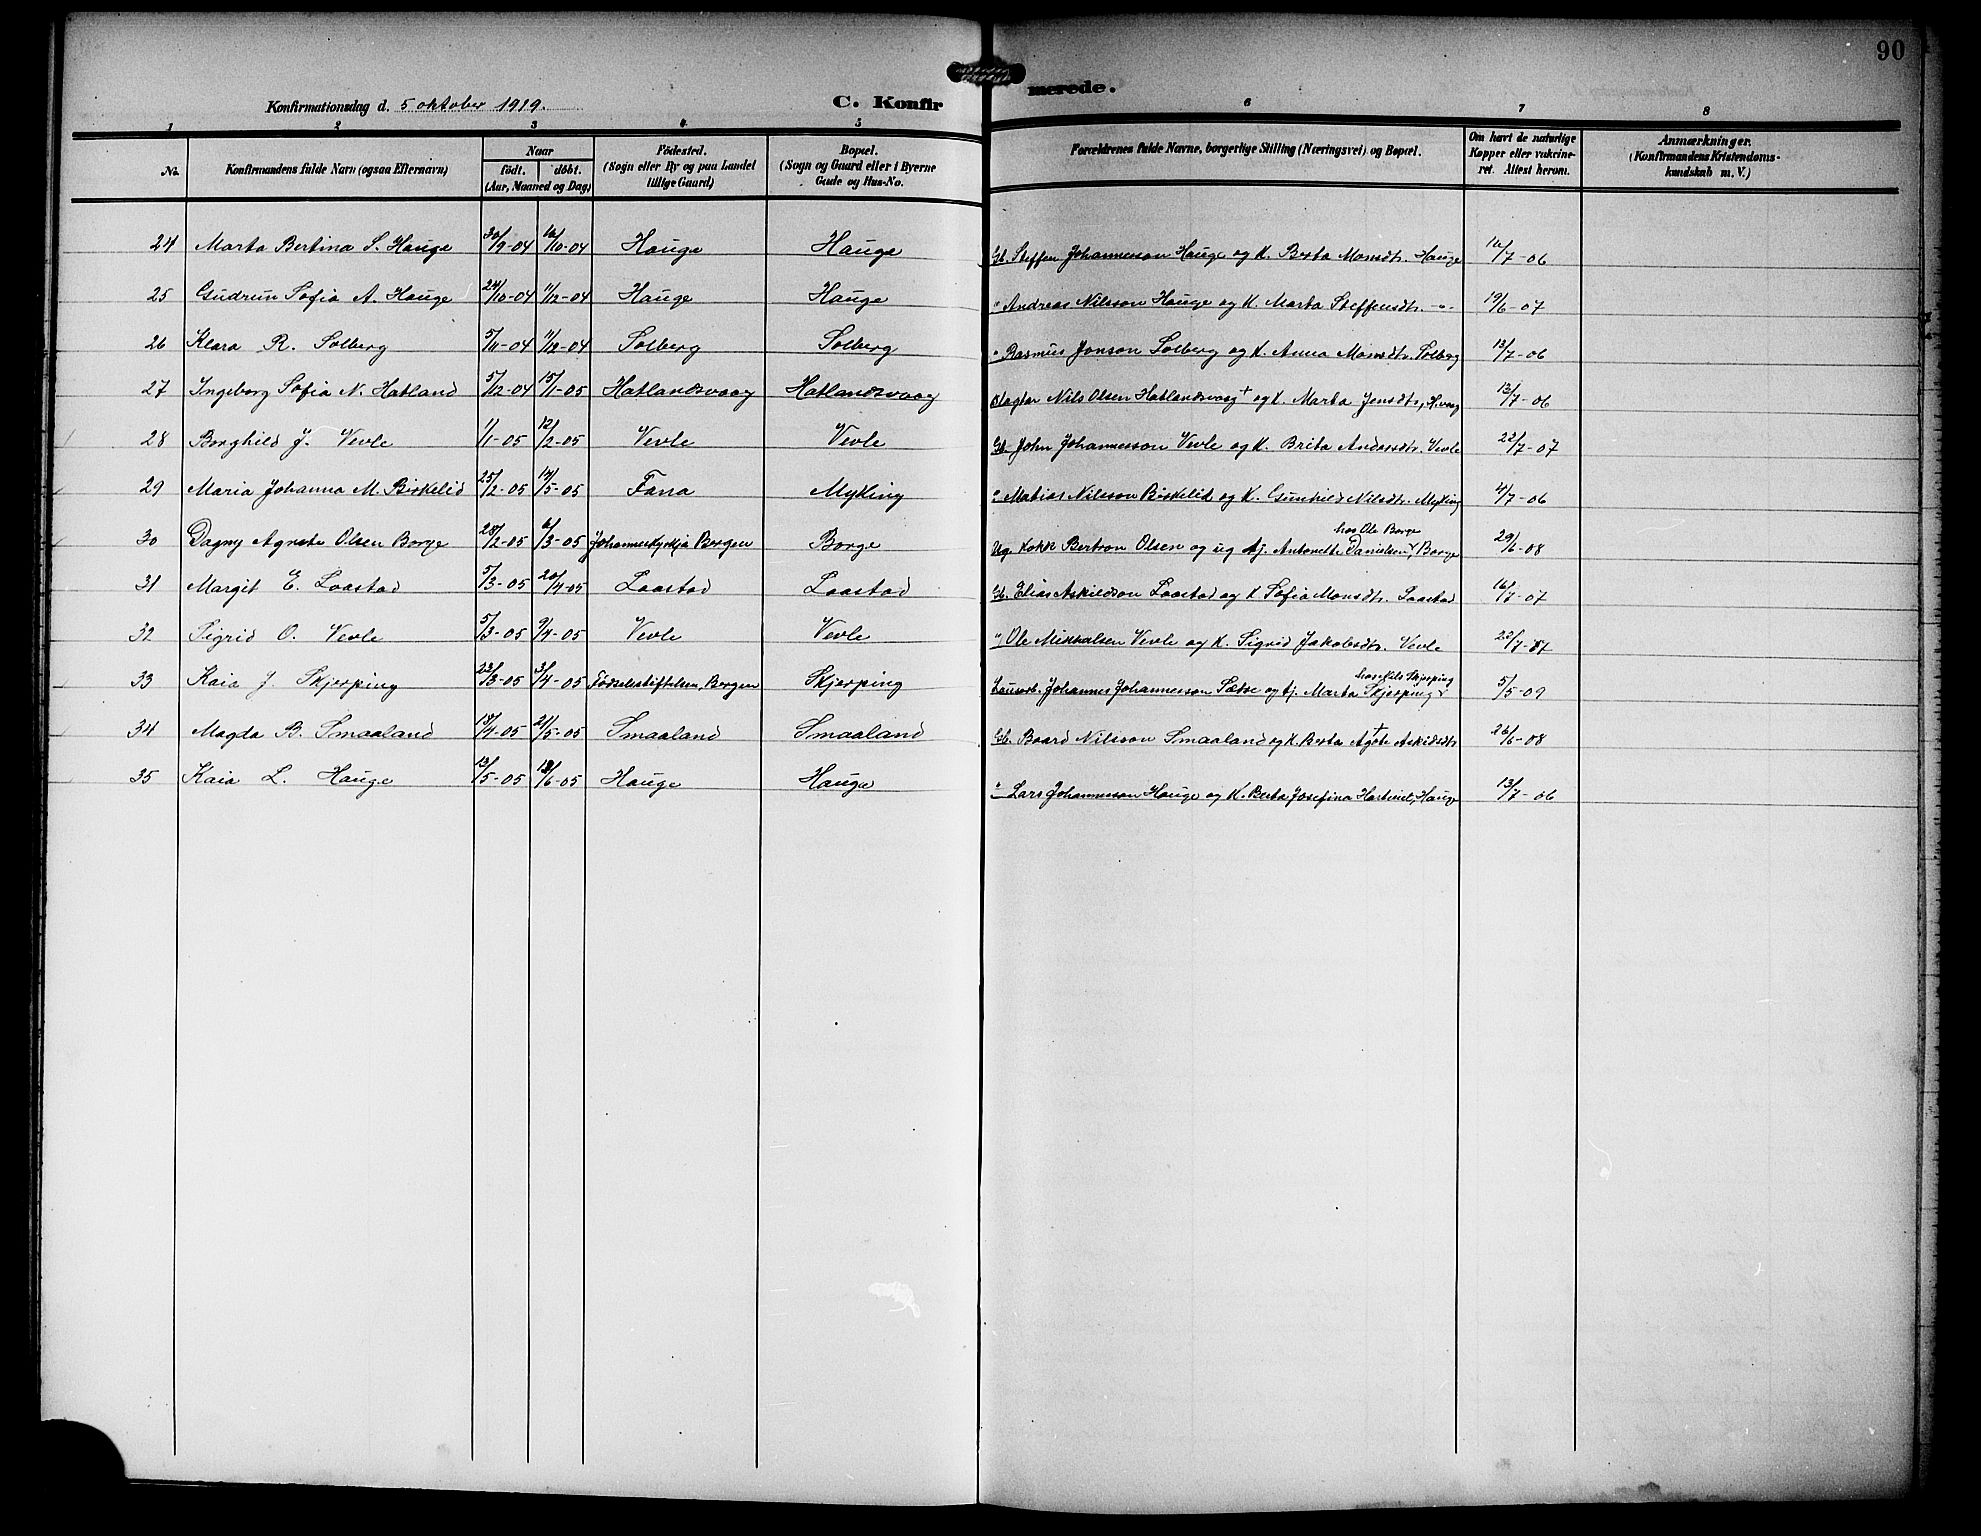 90
Konfirmationsdag d. 5 oktober 1919.
C. Konfir
merede.
1 2 3 4 5 6 7 8
No.
Konfirmandens fulde Navn (ogsaa Efternavn)
Naar
født. døbt.
(Aar, Maaned og Dag)
Fødested.
(Sogn eller By og paa Landet
tillige Gaard)
Bopæl.
(Sogn og Gaard eller i Byerne
Gade og Hus-No.
Forældrenes fulde Navne, borgerlige Stilling (Næringsvei) og Bopæl.
Om havt de naturlige
Kopper eller vakcine-
ret. Attest herom.
Anmærkninger.
(Konfirmandens Kristendoms-
kundskab m. V.)
24 Marta Bertina S. Hauge 30/9-04 16/10-04 Hauge Hauge Gb. Steffen Johannesson Hauge og K. Berta Monsdtr. Hauge 16/7-06
25 Gudrun Sofia A. Hauge 24/10-04 11/12-04 Hauge Hauge " Andreas Nilsson Hauge og K. Marta Steffensdtr. -"- 19/6-07
26 Klara R. Solberg 5/11-04 11/12-04 Solberg Solberg " Rasmus Jonson Solberg og K. Anna Monsdtr. Solberg 13/7-06
27 Ingeborg Sofia N. Hatland 5/12-04 15/1-05 Hatlandsvaag Hatlandsvaag Slagter Nils Olsen Hatlandsvaag + og K. Marta Jensdtr, H.vaag 13/7-06
28 Borghild J. Vevle 1/1-05 12/2-05 Vevle Vevle Gb. John Johannesson Vevle og K. Brita Andersdtr. Vevle 22/7-07
29 Maria Johanna M. Birkelid 25/2-05 14/5-05 Fana Myking " Matias Nilsson Birkelid og K. Gunhild Nilsdtr. Myking 4/7-06
hos Ole Borge
30 Dagny Agnete Olsen Borge 28/2-05 6/3-05 Johanneskyrkja Bergen Borge Ug. Kokk Bertron Olsen og ug tj. Antonette Danielsen, Borge 29/6-08
31 Margit E. Laastad 5/3-05 20/4-05 Laastad Laastad Gb. Elias Askildson Laastad og K Sofia Monsdtr. Laastad 16/7-07
32 Sigrid O. Vevle 5/3-05 9/4-05 Vevle Vevle " Ole Mikkalsen Vevle og K. Sigrid Jakobsdtr. Vevle 22/7-07
hos Nils Skjerping
33 Kaia J. Skjerping 23/3-05 3/4-05 Fødselsstiftelsen, Bergen Skjerping Johannes Johannesson Sætre og tj. Marta Skjerping 5/5-09
34 Magda B. Smaaland 18/4-05 21/5-05 Smaaland Smaaland Gb. Baard Nilsson Smaaland og K. Berta Agate + Askildsdtr 26/6-08
35 Kaia L. Hauge 13/5-05 18/6-05 Hauge Hauge " Lars Johannesson Hauge og K. Berta Josefina Hartvied, Hauge 13/7-06